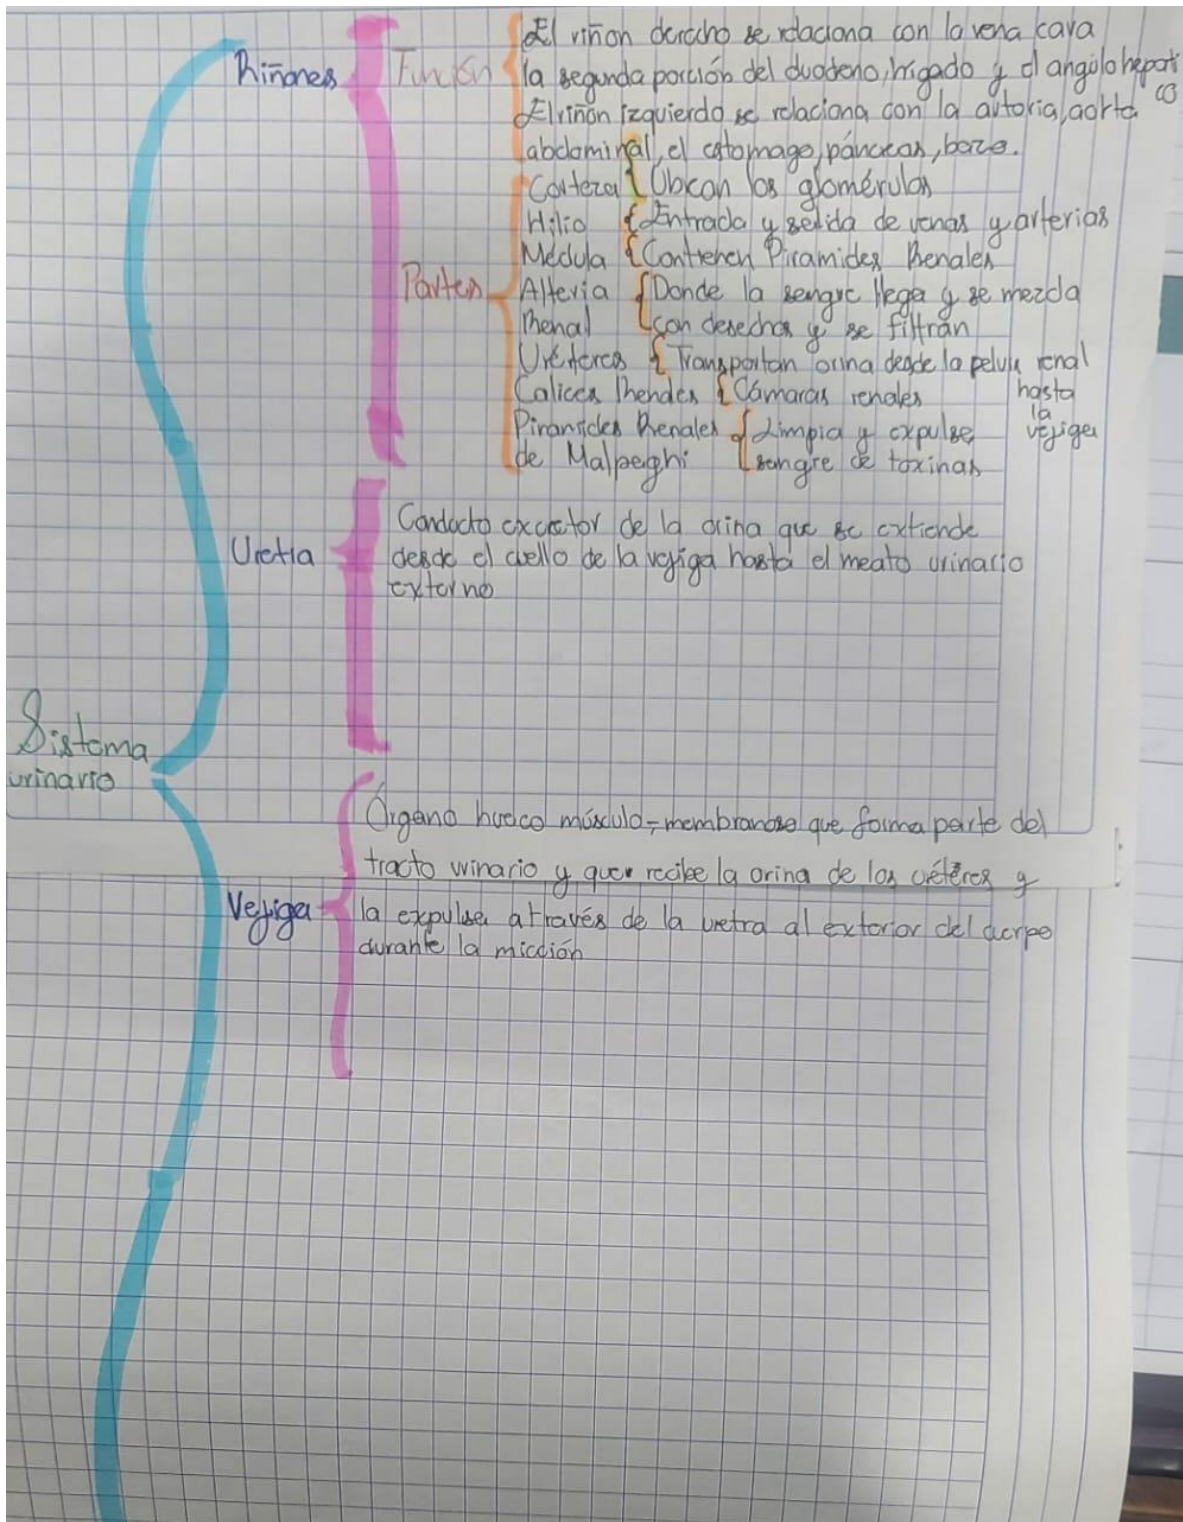 Sistema
urinario
Riñones
Función
El riñon derecho se relaciona con la vena cava
la segunda porción del duodeno, higado y el angulo hepati
co
El riñon izquierdo se relaciona con la autoria, aorta
abdominal, el estomago, páncreas, bazo.
Partes
Corteza { Ubican los glomérulos
Hilio { Entrada y salida de venas y arterias
Médula { Contienen Piramides Renales
Alteria { Donde la sangre llega y se mezcla
Renal con desechos y se filtran
Uréteres { Transportan orina desde la pelvis renal
hasta
la
vejiga
Calices Rhenales { Cámaras renales
Piramides Renales { Limpia y expulsa
de Malpeighi sangre de toxinas
Uretra
Conducto excretor de la orina que se extiende
desde el cuello de la vejiga hasta el meato urinario
externo
Vejiga
Órgano hueco músculo-membranoso que forma parte del
tracto urinario y que recibe la orina de los uréteres y
la expulsa a través de la uretra al exterior del cuerpo
durante la micción